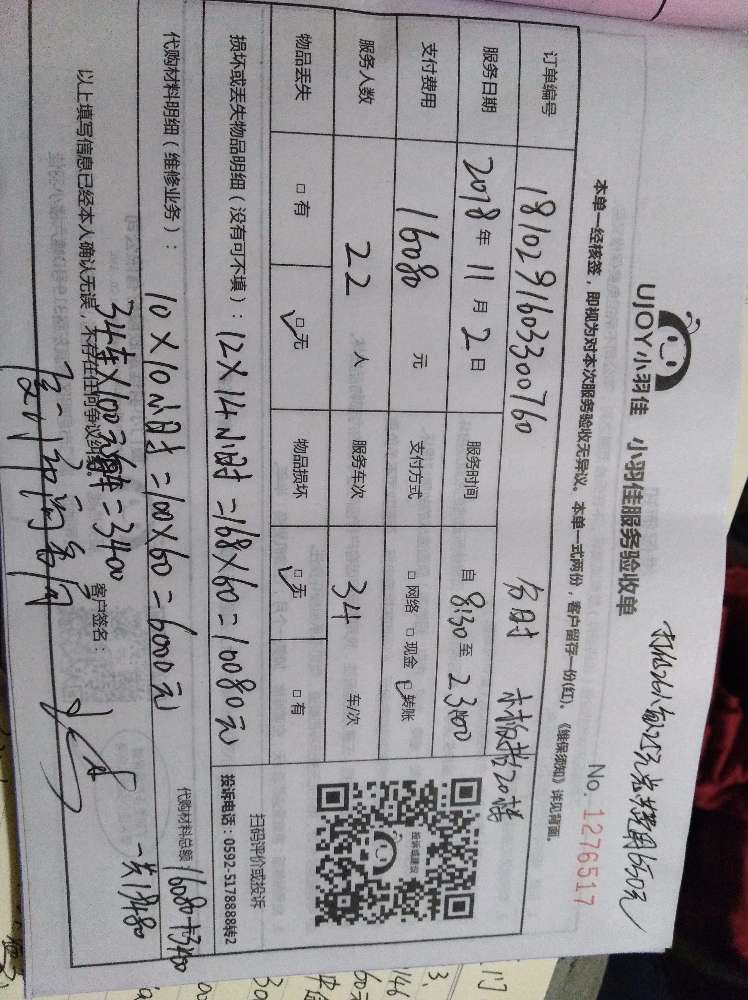 UJOY小羽佳 小羽佳服务验收单
No. 1276517
本单一经核签，即视为对本次服务验收无异议。本单一式两份，客户留存一份(红)。《维保须知》详见背面。
订单编号 1810291603300760
服务日期 2018年11月2日 服务时间 自 8:30 至 23:00
支付费用 16080 元 支付方式 □网络 □现金 ☑转账
服务人数 22 人 服务车次 34 车/次
物品丢失 □有 ☑无 物品损坏 ☑无 □有
扫码评价或投诉
投诉或建议
投诉电话：0592-5178888转2
损坏或丢失物品明细（没有可不填）：12×14小时=168×60=10080元
代购材料明细（维修业务）：10×10小时=100×60=6000元
代购材料总额 16080+3400
34车×100元/车=3400
一共19480
以上填写信息已经本人确认无误，不存在任何争议纠纷 客户签名：